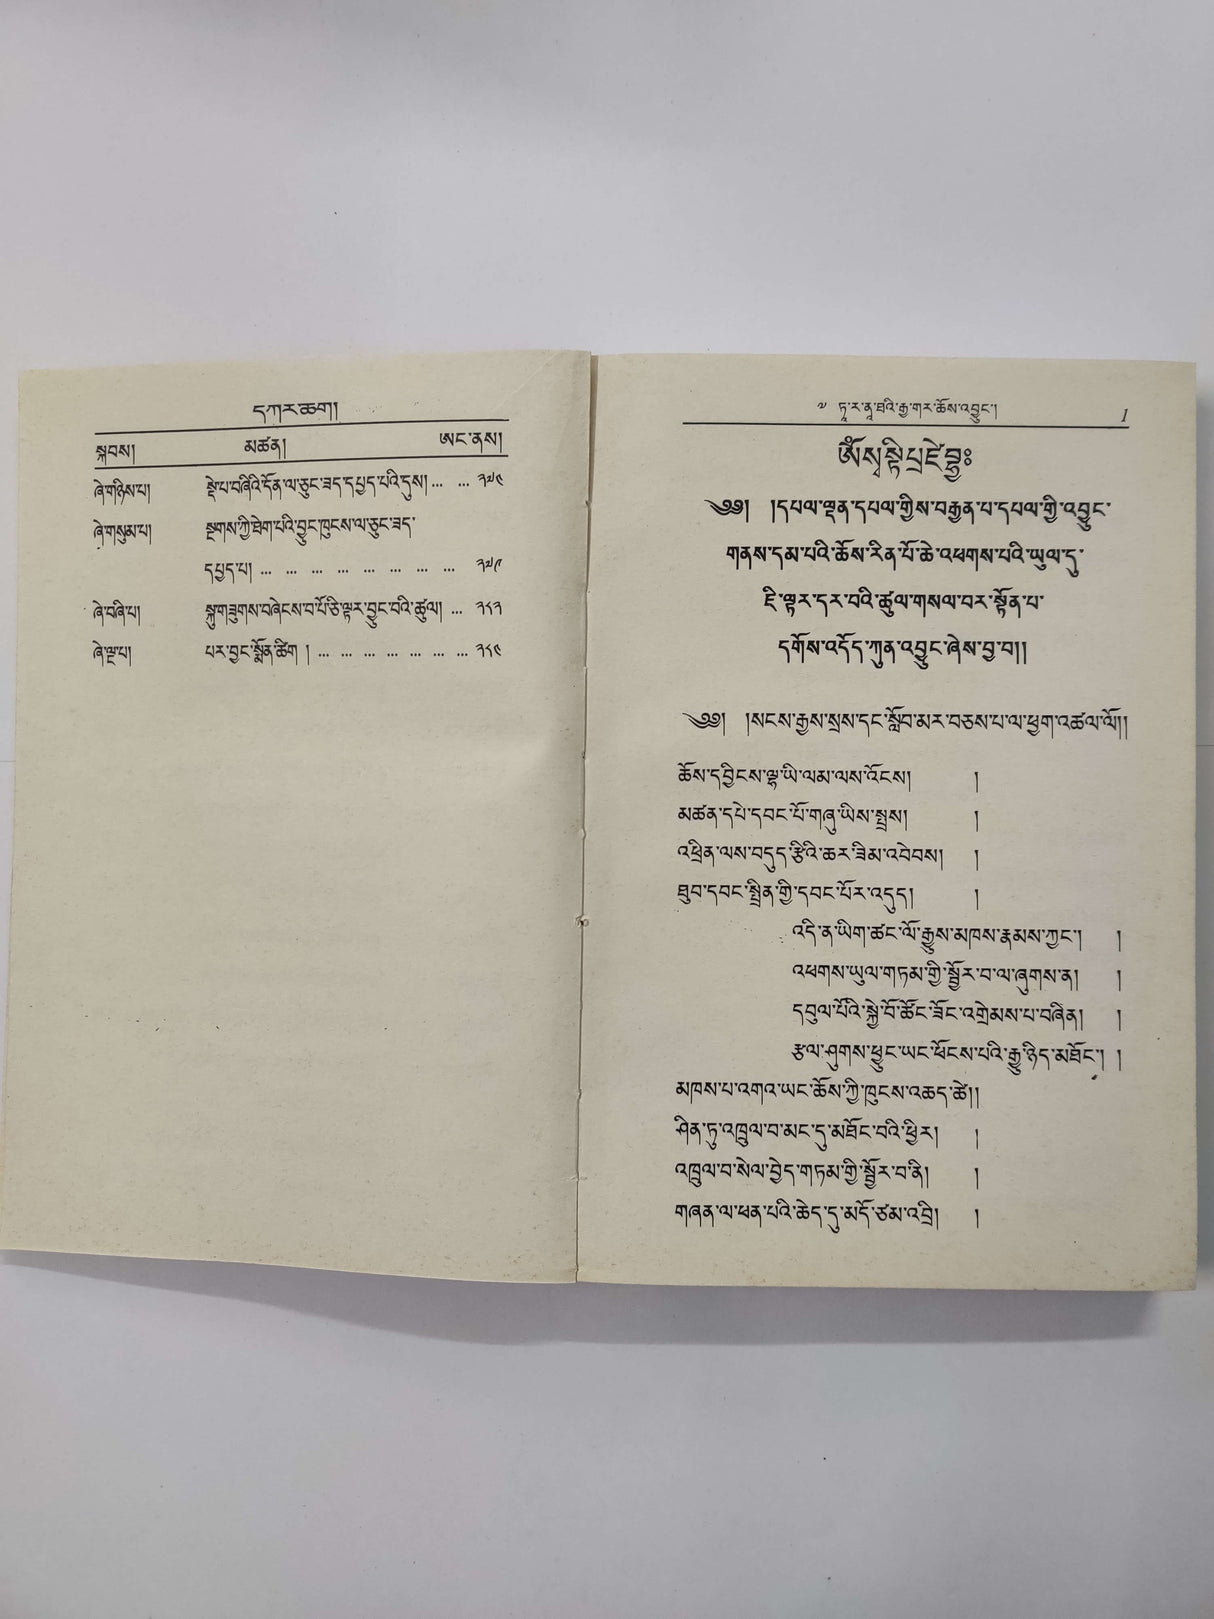 དཀར་ཆག།
སྐབས། མཚན། ཨང་ནས།
ཞེ་གཉིས་པ། སྡེ་པ་བཞིའི་དོན་ལ་ཅུང་ཟད་དཔྱད་པའི་དུས། ... ... ༢༧༤
ཞེ་གསུམ་པ། སྔགས་ཀྱི་ཐེག་པའི་བྱུང་ཁུངས་ལ་ཅུང་ཟད་
དཔྱད་པ། ... ... ... ... ... ... ... ... ༢༧༩
ཞེ་བཞི་པ། སྐུ་གཟུགས་བཞེངས་བ་པོ་ཅི་ལྟར་བྱུང་བའི་ཚུལ། ... ༢༨༢
ཞེ་ལྔ་པ། པར་བྱང་སྨོན་ཚིག ། ... ... ... ... ... ... ... ༢༨༤
༧ ཏཱ་ར་ནཱ་ཐའི་རྒྱ་གར་ཆོས་འབྱུང་། 1
ༀ་སྭསྟི་པྲཛེ་བྷྱཿ
༄༅། །དཔལ་ལྡན་དཔལ་གྱིས་བརྒྱན་པ་དཔལ་གྱི་འབྱུང་
གནས་དམ་པའི་ཆོས་རིན་པོ་ཆེ་འཕགས་པའི་ཡུལ་དུ་
ཇི་ལྟར་དར་བའི་ཚུལ་གསལ་བར་སྟོན་པ་
དགོས་འདོད་ཀུན་འབྱུང་ཞེས་བྱ་བ།།
༄༅། །སངས་རྒྱས་སྲས་དང་སློབ་མར་བཅས་པ་ལ་ཕྱག་འཚལ་ལོ།།
ཆོས་དབྱིངས་ལྷ་ཡི་ལམ་ལས་འོངས། །
མཚན་དཔེ་དབང་པོ་གཞུ་ཡིས་སྤྲས། །
འཕྲིན་ལས་བདུད་རྩིའི་ཆར་ཟིམ་འབེབས། །
ཐུབ་དབང་སྤྲིན་གྱི་དབང་པོར་འདུད། །
འདི་ན་ཡིག་ཚང་ལོ་རྒྱུས་མཁས་རྣམས་ཀྱང་། །
འཕགས་ཡུལ་གཏམ་གྱི་སྦྱོར་བ་ལ་ཞུགས་ན། །
དབུལ་པོའི་སྐྱེ་བོ་ཚོང་ཟོང་འགྲེམས་པ་བཞིན། །
རྩལ་ཤུགས་ཕྱུང་ཡང་ཕོངས་པའི་རྒྱུ་ཉིད་མཐོང་། །
མཁས་པ་འགའ་ཡང་ཆོས་ཀྱི་ཁུངས་འཆད་ཚེ།།
ཤིན་ཏུ་འཁྲུལ་བ་མང་དུ་མཐོང་བའི་ཕྱིར། །
འཁྲུལ་བ་སེལ་བྱེད་གཏམ་གྱི་སྦྱོར་བ་ནི། །
གཞན་ལ་ཕན་པའི་ཆེད་དུ་མདོ་ཙམ་འབྲི། །